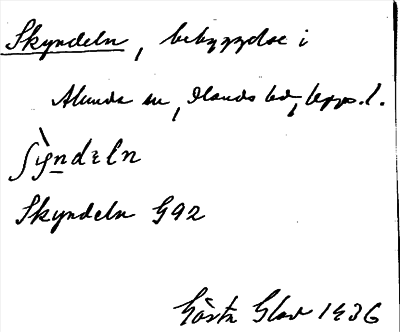 Skyndeln, bebyggelse i
Alunda sn, Olands hd, Upps. l.
ʃỳndɛln
Skyndeln G92
Gösta 1936